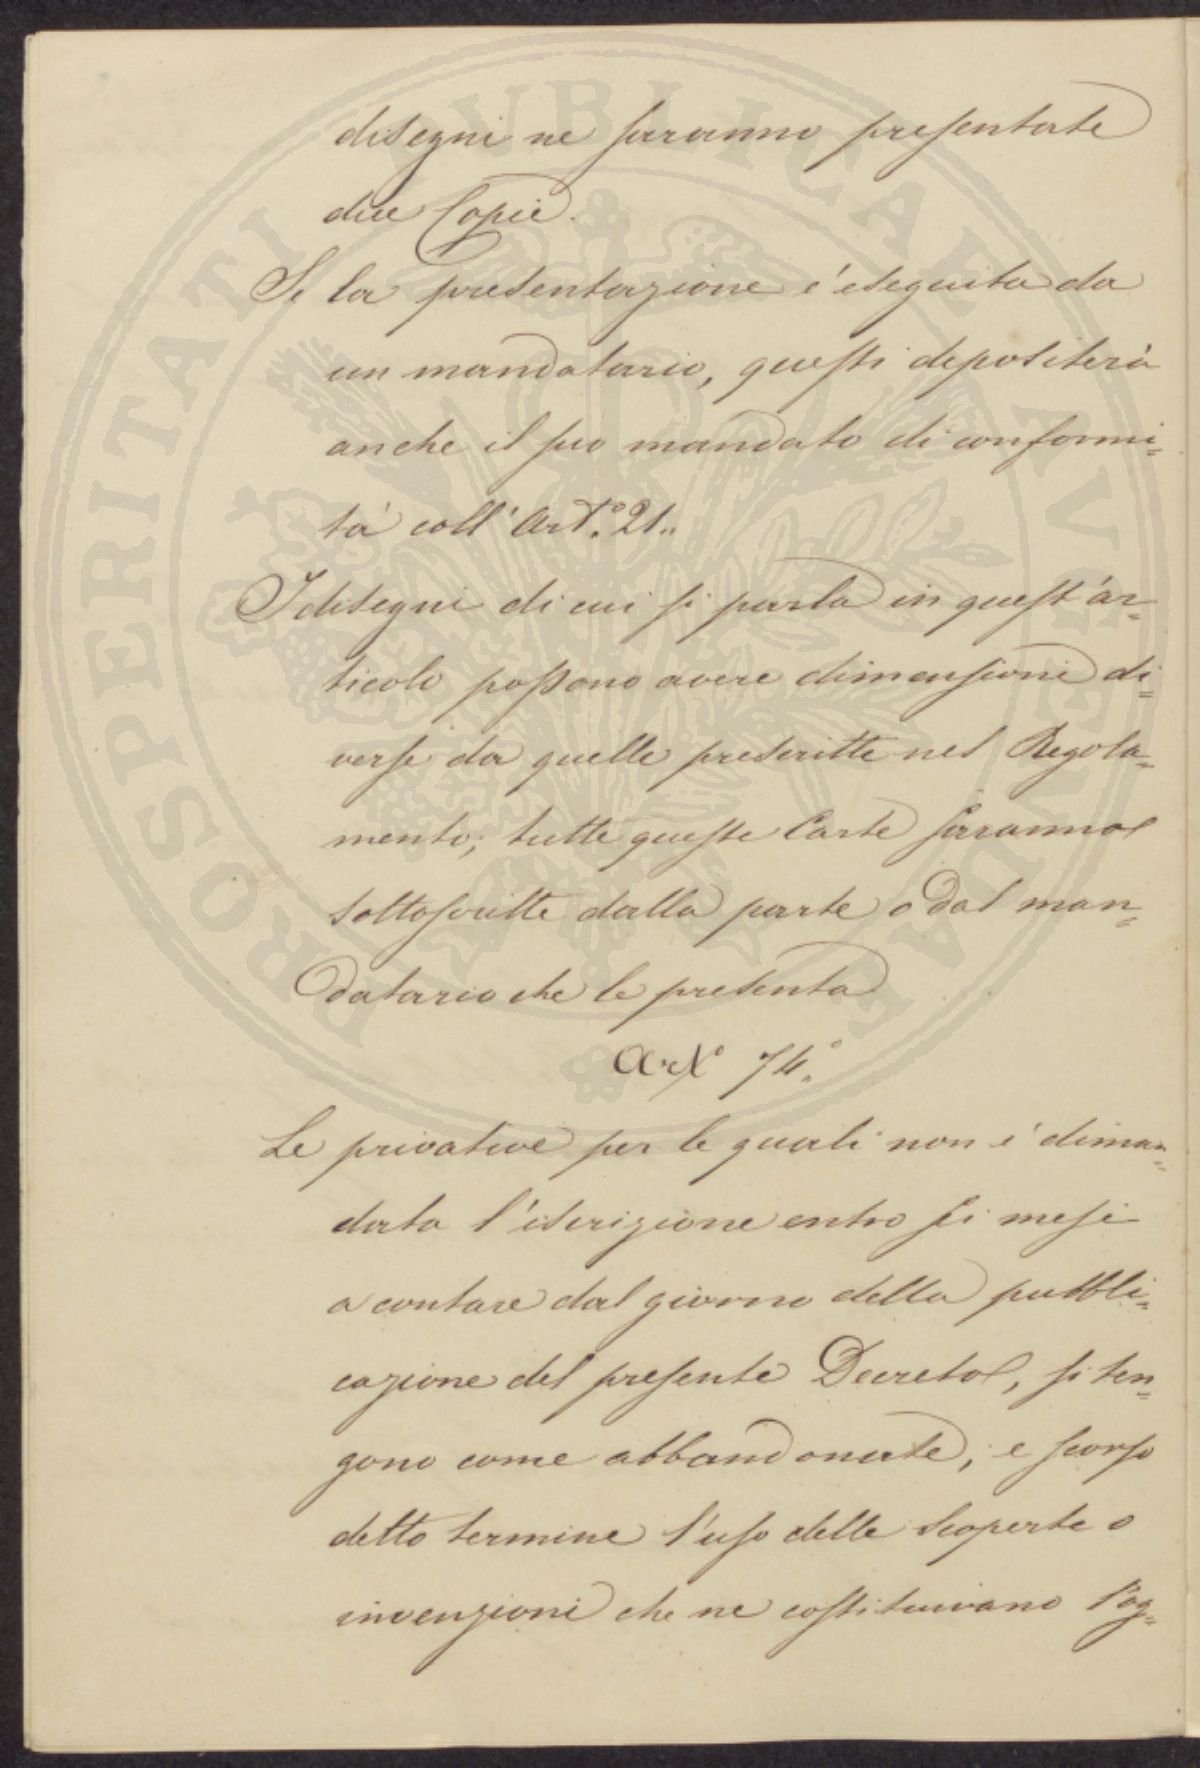 disegni ne saranno presentate
due Copie.
Se la presentazione è eseguita da
un mandatario, questi depositerà
anche il suo mandato di conformi=
tà coll' Art.° 21..
I disegni di cui si parla in quest'ar=
ticolo possono avere dimensioni di=
verse da quelle prescritte nel Regola=
mento; tutte queste Carte saranno
sottoscritte dalla parte o dal man=
datario che le presenta
Art° 74.°
Le privative per le quali non è diman=
data l'iscrizione entro sei mesi
a contare dal giorno della pubbli=
cazione del presente Decreto, si ten=
gono come abbandonate, e scorso
detto termine l'uso delle scoperte o
invenzioni che ne costituivano l'og=
PROSPERITATI PVBLICAE AVGENDAE